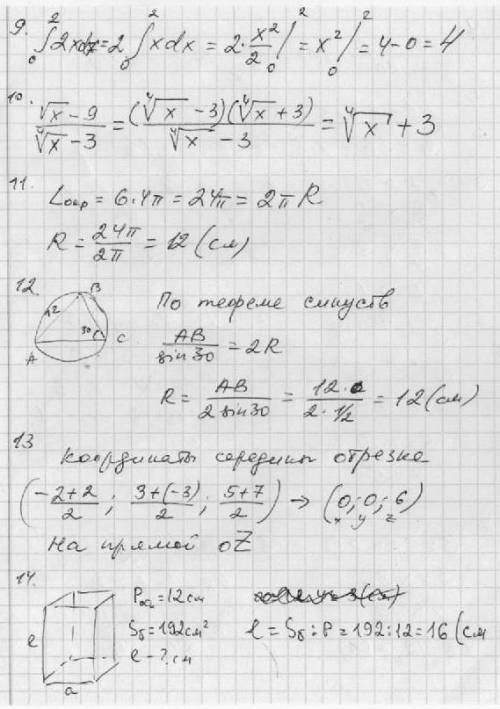 9. ∫₀² 2xdx = 2 ∫₀² xdx = 2 · x²/2 |₀² = x² |₀² = 4-0 = 4
10. (√x - 9)/(⁴√x - 3) = ((⁴√x - 3)(⁴√x + 3))/(⁴√x - 3) = ⁴√x + 3
11.
Lокр = 6·4π = 24π = 2πR
R = 24π/2π = 12 (см)
12.
B
12
30
A
C
По теореме синусов
AB/sin30 = 2R
R = AB/(2 sin30) = 12/(2·1/2) = 12 (см)
13
Координаты середины отрезка
((-2+2)/2; (3+(-3))/2; (5+7)/2) → (0; 0; 6)
x y z
На прямой OZ
14.
Pосн = 12 см
Sб = 192 см²
ℓ - ? см
ℓ = Sб : P = 192 : 12 = 16 (см
ℓ
a